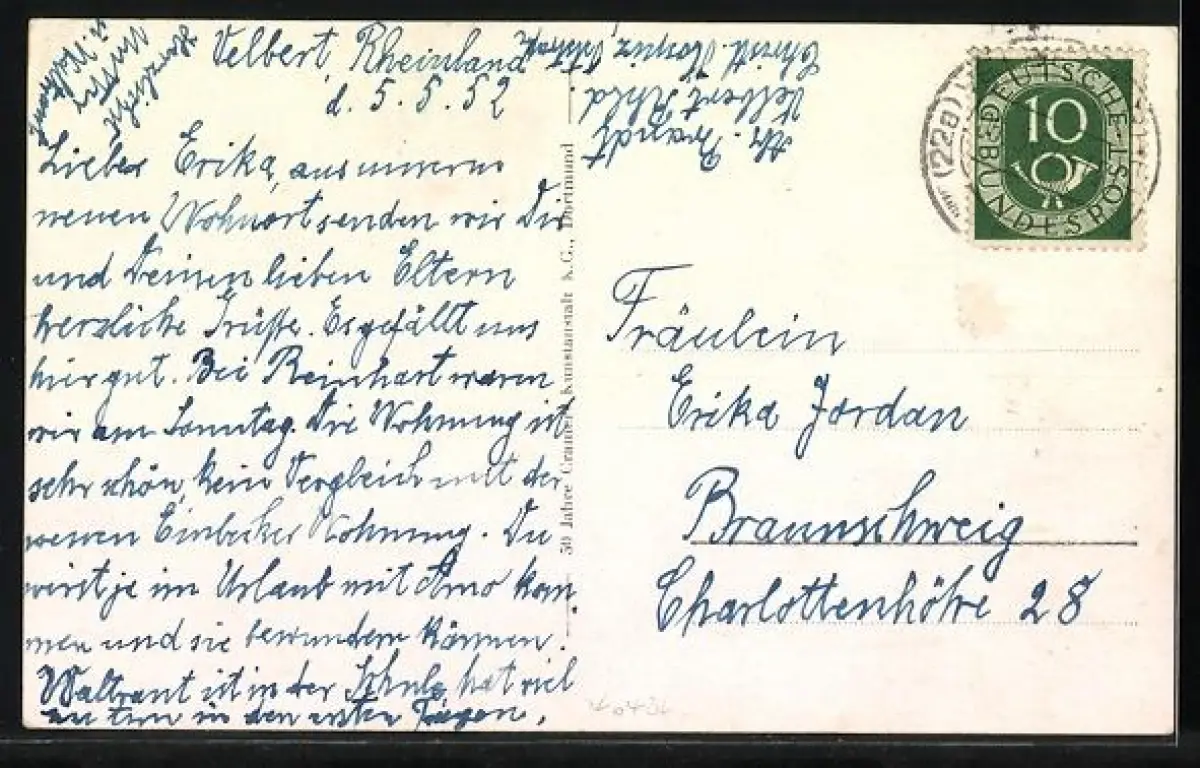 Velbert, Rheinland
d. 5. 5. 52
Liebe Erika, aus unserem
neuen Wohnort senden wir Dir
und Deinen lieben Eltern
herzliche Grüsse. Es gefällt uns
hier gut. Bei Reinhart waren
wir am Sonntag. Die Wohnung ist
sehr schön, kein Vergleich mit der
neuen Einbecker Wohnung. Du
wirst ja im Urlaub mit Arno kom
men und sie bewundern können.
Waltraut ist in der Schule, hat viel
zu tun in den ersten Tagen.
Abs. Brandt
Velbert Rhld.
Christl. Hospiz,
50 Jahre Cramers Kunstanstalt K.G., Dortmund
DEUTSCHE
BUNDESPOST
10
(22a)
Fräulein
Erika Jordan
Braunschweig
Charlottenhöhe 28